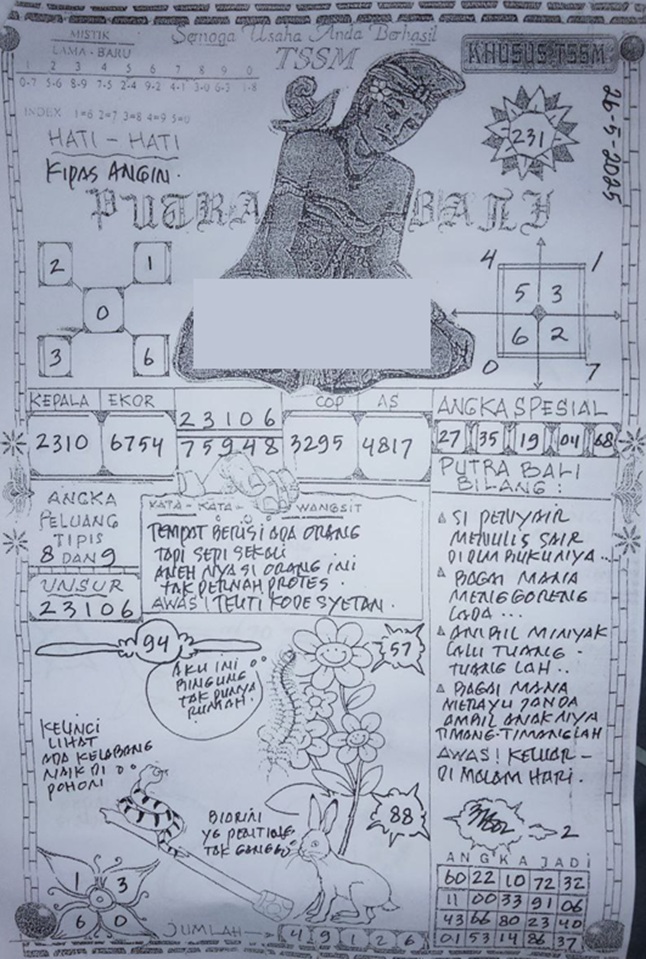 MISTIK
LAMA - BARU
1 2 3 4 5 6 7 8 9 0
0-7 5-6 8-9 7-5 2-4 9-2 4-1 3-0 6-3 1-8
INDEX 1=6 2=7 3=8 4=9 5=0
Semoga Usaha Anda Berhasil
TSSM
KHUSUS TSSM
26-5-2025
231
HATI - HATI
KIPAS ANGIN.
PUTRA BALI
2 1
0
3 6
4 1
5 3
6 2
0 7
KEPALA EKOR
2310 6754
23106
75948
COP AS
3295 4817
ANGKA SPESIAL
27 35 19 04 68
ANGKA
PELUANG
TIPIS
8 DAN 9
UNSUR
23106
KATA - KATA - WANGSIT
TEMPAT BERISI ADA ORANG
TAPI SEPI SEKALI
ANEH NYA SI ORANG INI
TAK PERNAH PROTES.
AWAS! TELITI KODE SYETAN.
PUTRA BALI
BILANG:
SI PENYAIR
MENULIS SAIR
DI DLM BUKUNYA...
BAGAI MANA
MENGGORENG
LADA...
AMBIL MINYAK
LALU TUANG-
TUANG LAH..
BAGAI MANA
MERAYU JANDA
AMBIL ANAKNYA
TIMANG-TIMANGLAH
AWAS! KELUAR-
DI MALAM HARI.
94
57
AKU INI
BINGUNG
TAK PUNYA
RUMAH.
KELINCI
LIHAT
ADA KELABANG
NAIK DI
POHON
BIARIN
YG PENTING
TAK GANGGU
88
2
1 3
6 0
JUMLAH
4 9 1 2 6
ANGKA JADI
60 22 10 72 32
11 00 33 91 06
43 66 80 23 40
01 53 14 86 37